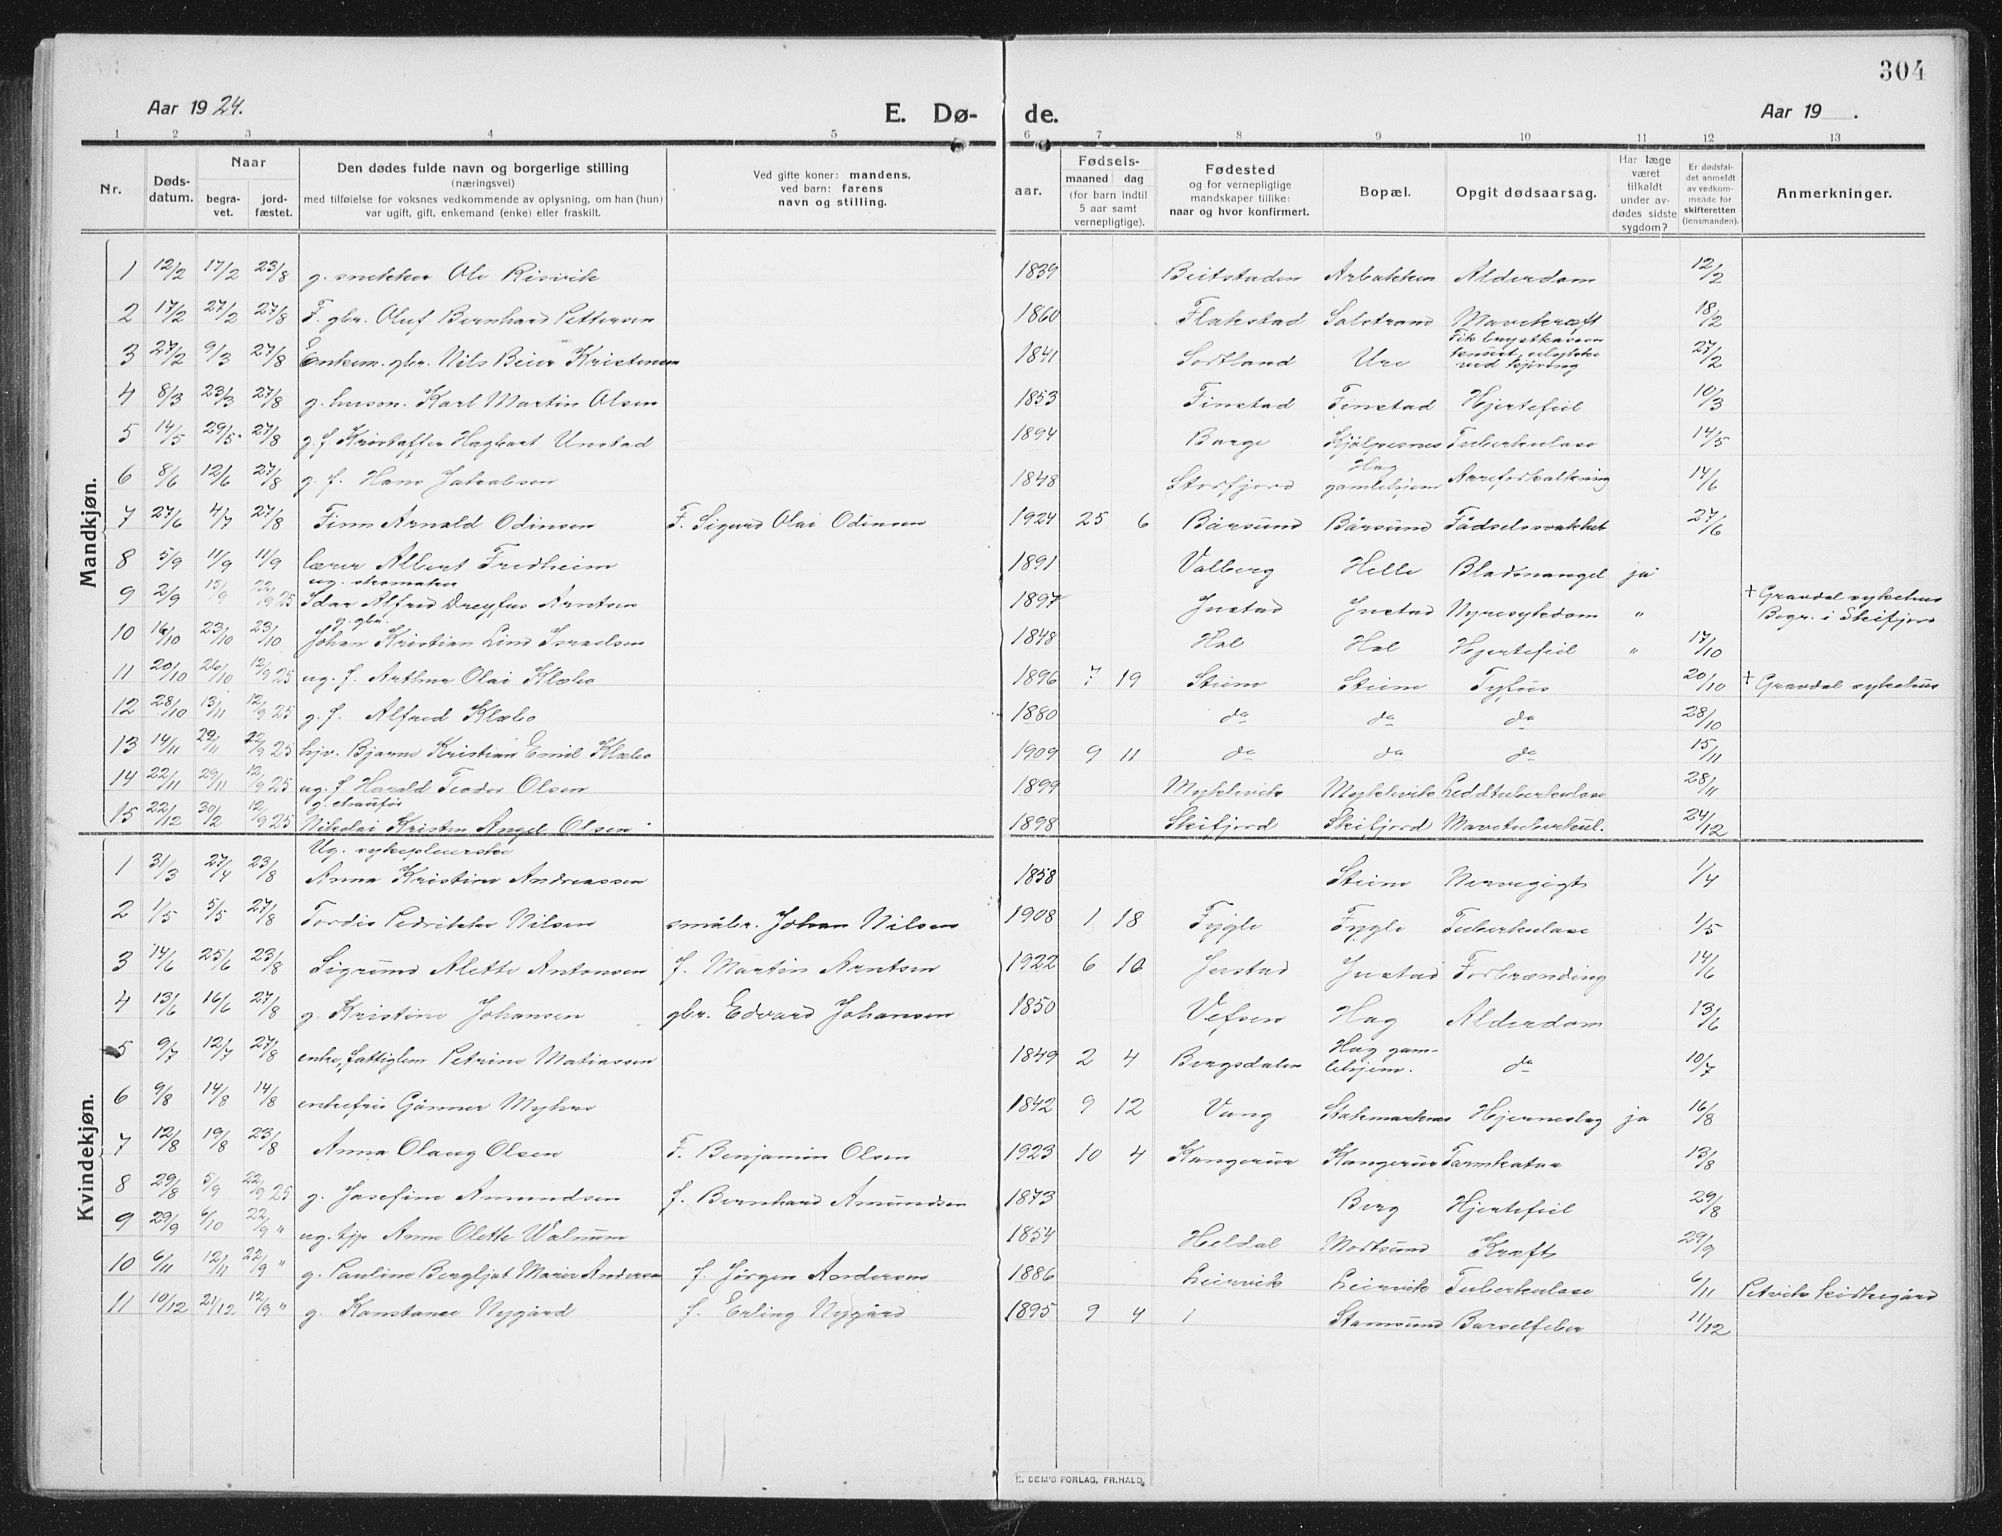 304
Aar 1924. E. Dø- de. Aar 19 .
1 2 3 4 5 6 7 8 9 10 11 12 13
Nr. Døds-datum. Naar begra-vet. jord-fæstet. Den dødes fulde navn og borgerlige stilling (næringsvei) med tilføielse for voksnes vedkommende av oplysning, om han (hun) var ugift, gift, enkemand (enke) eller fraskilt. Ved gifte koner: mandens. ved barn: farens navn og stilling. aar. Fødsels- maaned dag (for barn indtil 5 aar samt vernepligtige). Fødested og for vernepligtige mandskaper tillike: naar og hvor konfirmert. Bopæl. Opgit dødsaarsag. Har læge været tilkaldt under av-dødes sidste sygdom? Er dødsfal-det anmeldt av vedkom-mende for skifteretten (lensmanden). Anmerkninger.
Mandkjøn.
1 12/2 17/2 23/8 g. snekker Ole Risvik 1839 Beitstaden Arbakken Alderdom 12/2
2 17/2 27/2 27/8 F. gbr. Oluf Bernhard Pettersen 1860 Flakstad Solstrand Mavekræft 18/2
3 27/2 9/3 27/8 Enkem. gbr. Nils Beier Kristensen 1841 Sortland Ure Fik brystkassen knust, ulykke ved kjøring 27/2
4 8/3 23/3 27/8 g. husm. Karl Martin Olsen 1853 Finstad Finstad Hjertefeil 10/3
5 14/5 29/5 27/8 g. f. Kristoffer Hagbart Unstad 1894 Borge Kjølpesnes Tuberkulose 14/5
6 8/6 12/6 27/8 g. f. Hans Jakobsen 1848 Storfjord Hag gamlehjem Aareforkalkning 14/6
7 27/6 4/7 27/8 Finn Arnold Odinsen F. Sigurd Olai Odinsen 1924 25 6 Bårsund Bårsund Fødselssvakhet 27/6
8 5/9 11/9 11/9 lærer Albert Fredheim 1891 Valberg Helle Blodmangel ja
9 2/9 15/9 22/9 25 ug. skomaker Idar Alfred Dreyfus Arntsen 1897 Justad Justad Nyresykdom " + Gravdal sykehus Begr. i Skifjord
10 16/10 23/10 23/10 g. gbr. Johan Kristian Lind Israelsen 1848 Hol Hol Hjertefeil " 17/10
11 20/10 26/10 12/9 25 ug. f. Arthur Olai Klæbo 1896 7 19 Steine Steine Tyfus 20/10 + Gravdal sykehus
12 28/10 13/11 12/9 25 g. f. Alfred Klæbo 1880 do do do 28/10
13 14/11 29/11 22/9 25 hjv. Bjarne Kristian Emil Klæbo 1909 9 11 do do do 15/11
14 22/11 29/11 12/9 25 ug. f Harald Teodor Olsen 1899 Myklevik Myklevik Leddtuberkulose 28/11
15 22/12 30/12 12/9 25 g. chaufør Nikolai Kristen Angel Olsen 1898 Skifjord Skifjord Mavetuberkul. 24/12
Kvindekjøn.
1 31/3 27/4 23/8 Ug. sykepleierske Anna Kristine Andreassen 1858 Steine Nervegigt 1/4
2 1/5 5/5 27/8 Tordis Pedrikke Nilsen småbr. Johan Nilsen 1908 1 18 Fygle Fygle Tuberkulose 1/5
3 14/6 25/6 23/8 Sigrund Alette Antonsen f. Martin Arntsen 1922 6 10 Justad Justad Forbrænding 14/6
4 13/6 16/6 27/8 g. Kristine Johansen gbr. Edvard Johansen 1850 Vefsen Hag Alderdom 13/6
5 9/7 12/7 27/8 enke, fattiglem Petrine Matiassen 1849 2 4 Bergsdalen Hag gam-lehjem. do 10/7
6 9/8 14/8 14/8 enkefru Gunner Myhre 1842 9 12 Vang Stakmarknes Hjerneslag ja 16/8
7 12/8 19/8 23/8 Anna Olaug Olsen F. Benjamin Olsen 1923 10 4 Kangerur Kangerur Tarmkatar 13/8
8 29/8 5/9 22/9 25 g. Josefine Amundsen f. Bernhard Amundsen 1873 Berg Hjertefeil 29/8
9 29/9 6/10 22/9 " ug. tjp Anne Olette Walnum 1854 Heldal Mortsund Kræft 29/9
10 6/11 12/11 22/9 " g. Pauline Bergljot Marie Andersen f. Jørgen Andersen 1886 Leirvik Leirvik Tuberkulose 6/11 Petvik kirkegård
11 10/12 21/12 12/9 " g. Konstance Nygård f. Erling Nygård 1895 9 4 1 Stamsund Barselfeber 11/12
E. SEM'S FORLAG, FR.HALD.